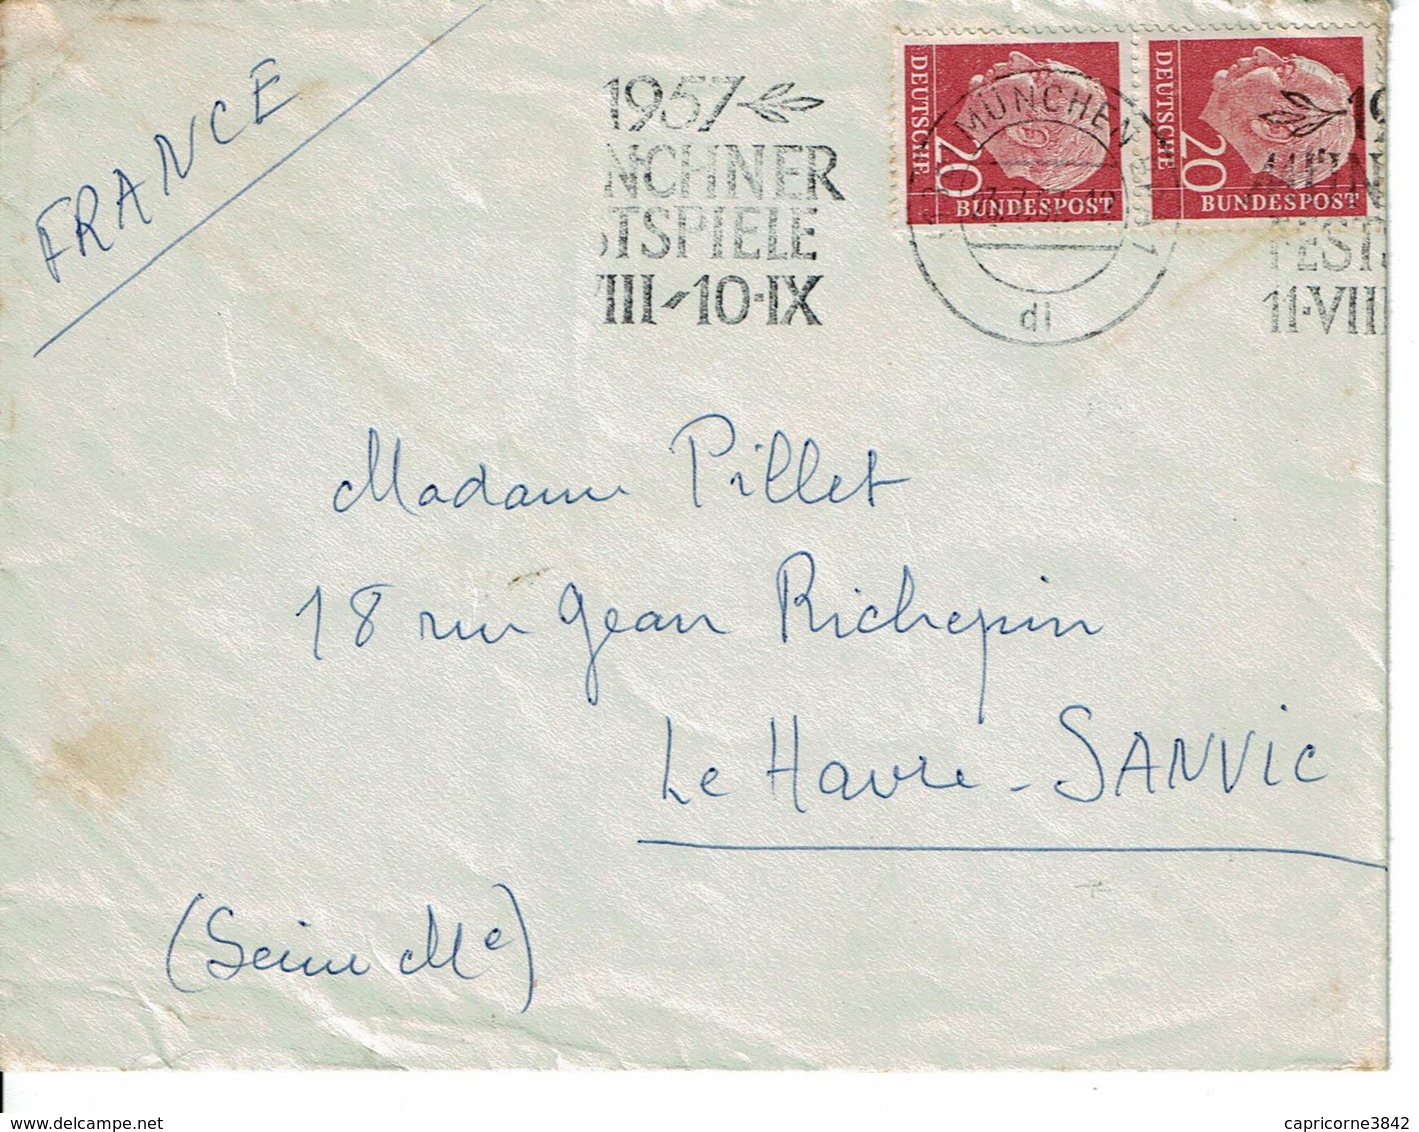 FRANCE
1957
NCHNER
TSPIELE
VIII-10·IX
DEUTSCHE
20
BUNDESPOST
DEUTSCHE
20
BUNDESPOST
MÜNCHEN
dl
19
MÜN
FEST
11·VIII
Madame Pillet
18 rue Jean Richepin
Le Havre - SANVIC
(Seine Me)
www.delcampe.net
capricorne3842